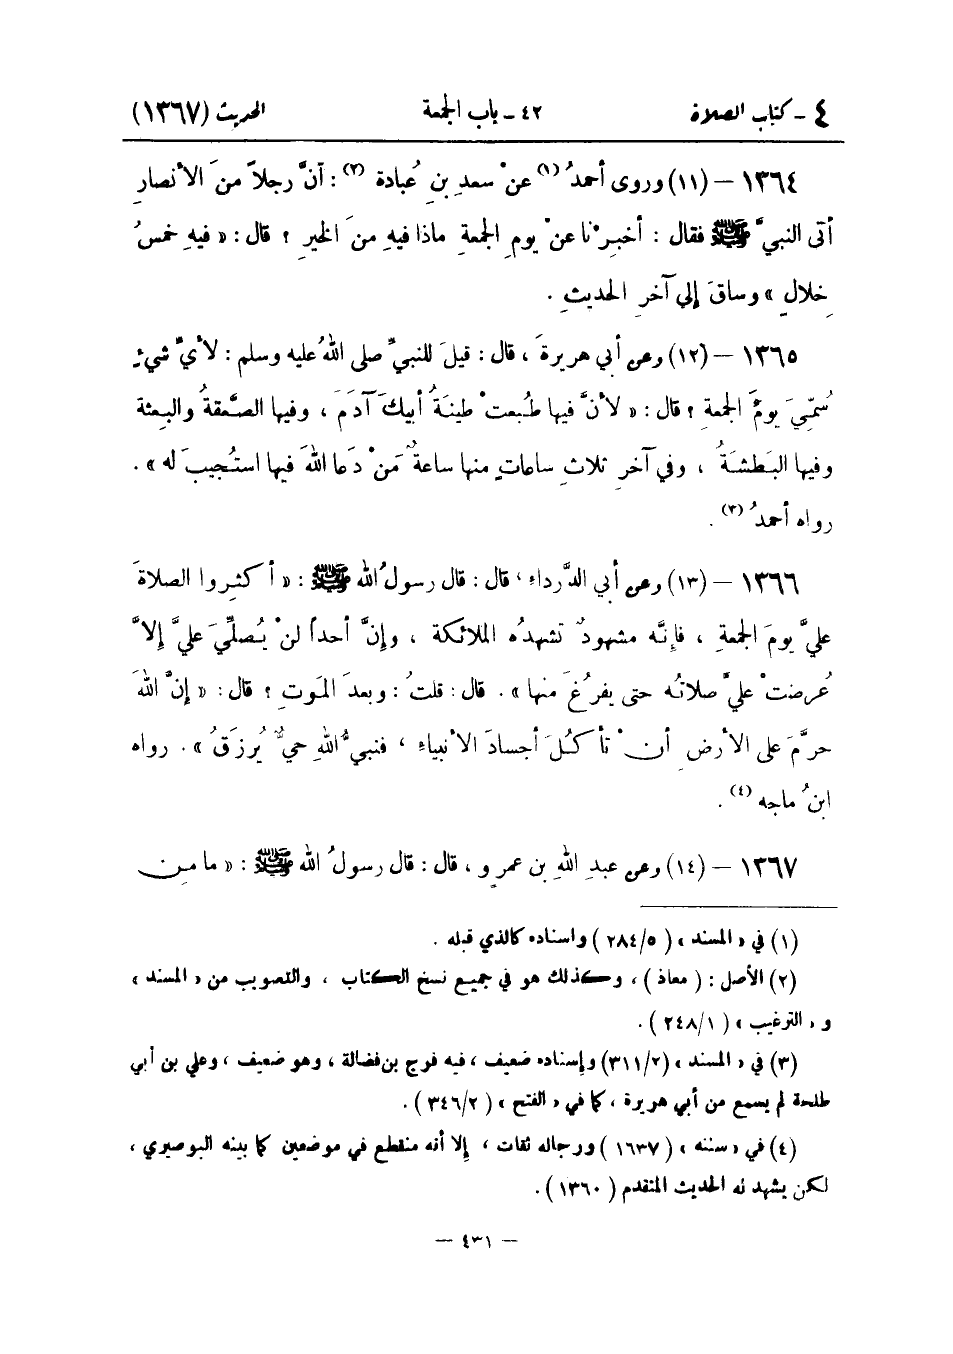 ٤ - كتاب الصلاة ٤٢ - باب الجمعة الحديث (١٣٦٧)
١٣٦٤ - (١١) وروى أحمدُ (١) عنْ سعدِ بنِ عُبادة (٢) : أنَّ رجلاً منَ الأنصارِ
أتى النبيَّ ﷺ فقال : أخبِرْنا عنْ يومِ الجمعةِ ماذا فيهِ منَ الخيرِ ؟ قال : « فيهِ خمسُ
خلالٍ » وساقَ إلى آخرِ الحديثِ .
١٣٦٥ - (١٢) وعن أبي هريرةَ ، قال : قيلَ للنبيِّ صلى اللهُ عليه وسلم : لأيِّ شيءٍ
سُمِّيَ يومَ الجمعةِ ؟ قال : « لأنَّ فيها طُبعتْ طينةُ أبيكَ آدَمَ ، وفيها الصَّعقةُ والبعثة
وفيها البَطشةُ ، وفي آخرِ ثلاثِ ساعاتٍ منها ساعةٌ مَنْ دَعا اللهَ فيها استُجيبَ له » .
رواه أحمدُ (٣) .
١٣٦٦ - (١٣) وعن أبي الدَّرداءِ ، قال : قال رسولُ الله ﷺ : « أكثِروا الصلاةَ
عليَّ يومَ الجمعةِ ، فإنَّه مشهودٌ تشهدُه الملائكة ، وإنَّ أحداً لنْ يُصلِّيَ عليَّ إلاَّ
عُرضتْ عليَّ صلاتُه حتى يفرُغَ منها » . قال : قلتُ : وبعدَ المَوتِ ؟ قال : « إنَّ اللهَ
حرَّمَ على الأرضِ أنْ تأكُلَ أجسادَ الأنبياءِ ، فنبيُّ اللهِ حيٌّ يُرزَقُ » . رواه
ابنُ ماجه (٤) .
١٣٦٧ - (١٤) وعن عبدِ اللهِ بن عمرٍو ، قال : قال رسولُ الله ﷺ : « ما من
(١) في « المسند » ( ٢٨٤/٥ ) واسناده كالذي قبله .
(٢) الأصل : ( معاذ ) ، وكذلك هو في جميع نسخ الكتاب ، والتصويب من « المسند »
و « الترغيب » ( ٢٤٨/١ ) .
(٣) في « المسند » (٣١١/٢) وإسناده ضعيف ، فيه فرج بن فضالة ، وهو ضعيف ، وعلي بن أبي
طلحة لم يسمع من أبي هريرة ، كما في « الفتح » ( ٣٤٦/٢ ) .
(٤) في « سننه » ( ١٦٣٧ ) ورجاله ثقات ، إلا أنه منقطع في موضعين كما بينه البوصيري ،
لكن يشهد له الحديث المتقدم ( ١٣٦٠ ) .
— ٤٣١ —